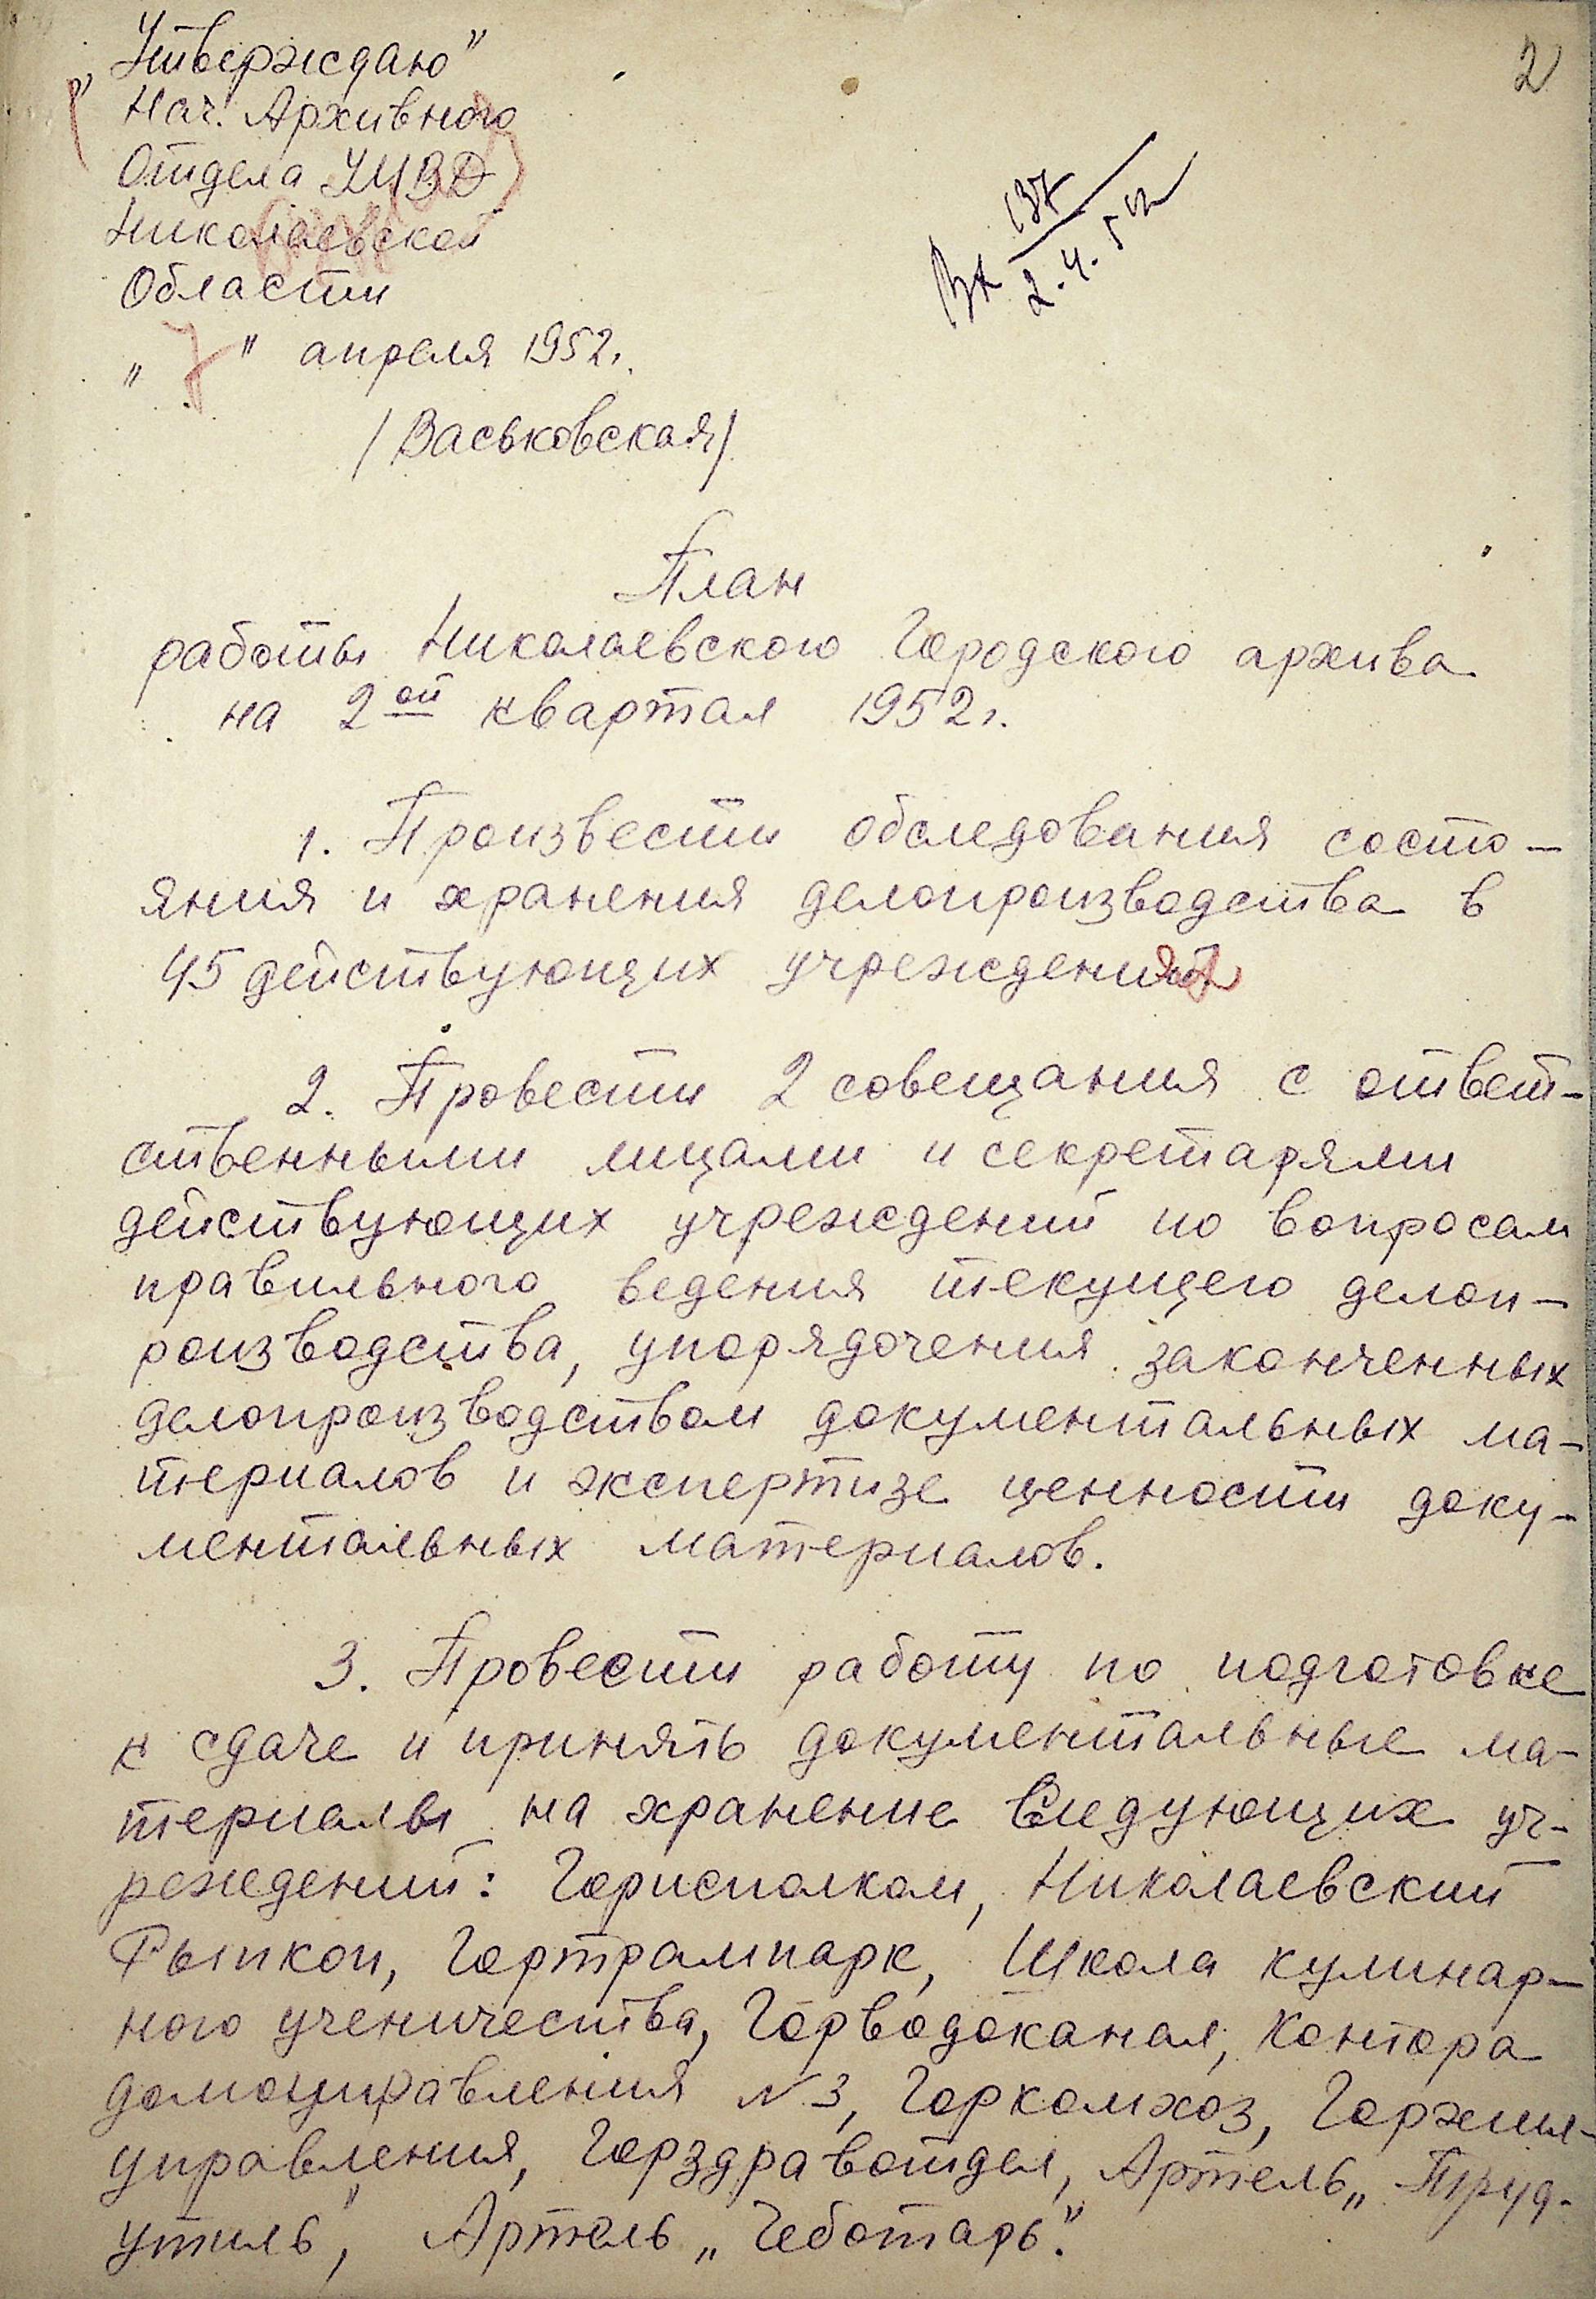 „Утверждаю"
Нач. Архивного
Отдела УМВД
Николаевской
Области
„7" апреля 1952г.
/Васьковская/
2
Вх 137
2.4.52
План
работы Николаевского Городского архива
на 2ой квартал 1952г.
1. Произвести обследования состо-
яния и хранения делопроизводства в
45 действующих учреждений
2. Провести 2 совещания с ответ-
ственными лицами и секретарями
действующих учреждений по вопросам
правильного ведения текущего делоп-
роизводства, упорядочения законченных
делопроизводством документальных ма-
териалов и экспертизе ценности доку-
ментальных материалов.
3. Провести работу по подготовке
к сдаче и принять документальные ма-
териалы на хранение Следующих уч-
реждений: Горисполком, Николаевский
Рыпкоп, Гортрампарк, Школа кулинар-
ного ученичества, Горводоканал, Контора
домоуправления N3, Горкомхоз, Горжил-
управления, Горздравотдел, Артель „Труд-
утиль", Артель „Чеботарь".